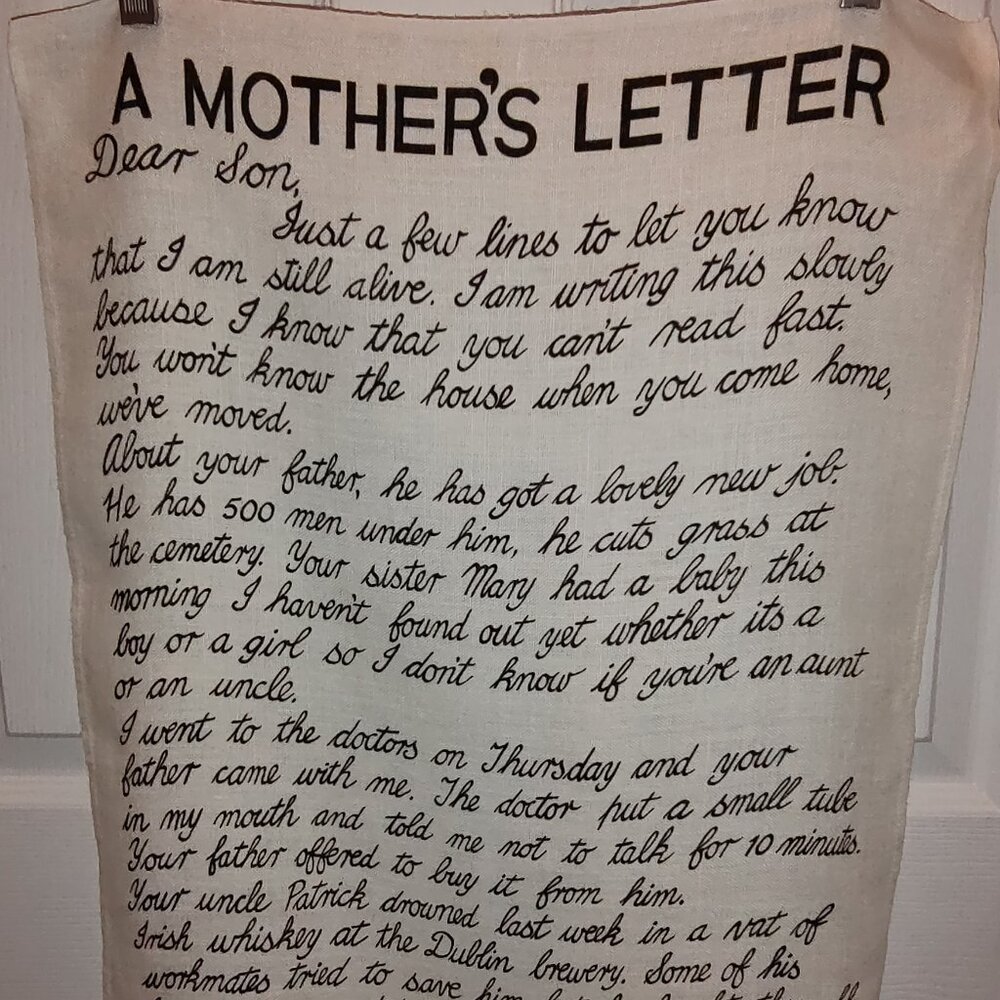 A MOTHER'S LETTER
Dear Son,
Just a few lines to let you know
that I am still alive. I am writing this slowly
because I know that you can't read fast.
You won't know the house when you come home,
we've moved.
About your father, he has got a lovely new job.
He has 500 men under him, he cuts grass at
the cemetery. Your sister Mary had a baby this
morning I haven't found out yet whether its a
boy or a girl so I don't know if you're an aunt
or an uncle.
I went to the doctors on Thursday and your
father came with me. The doctor put a small tube
in my mouth and told me not to talk for 10 minutes.
Your father offered to buy it from him.
Your uncle Patrick drowned last week in a vat of
Irish whiskey at the Dublin brewery. Some of his
workmates tried to save him